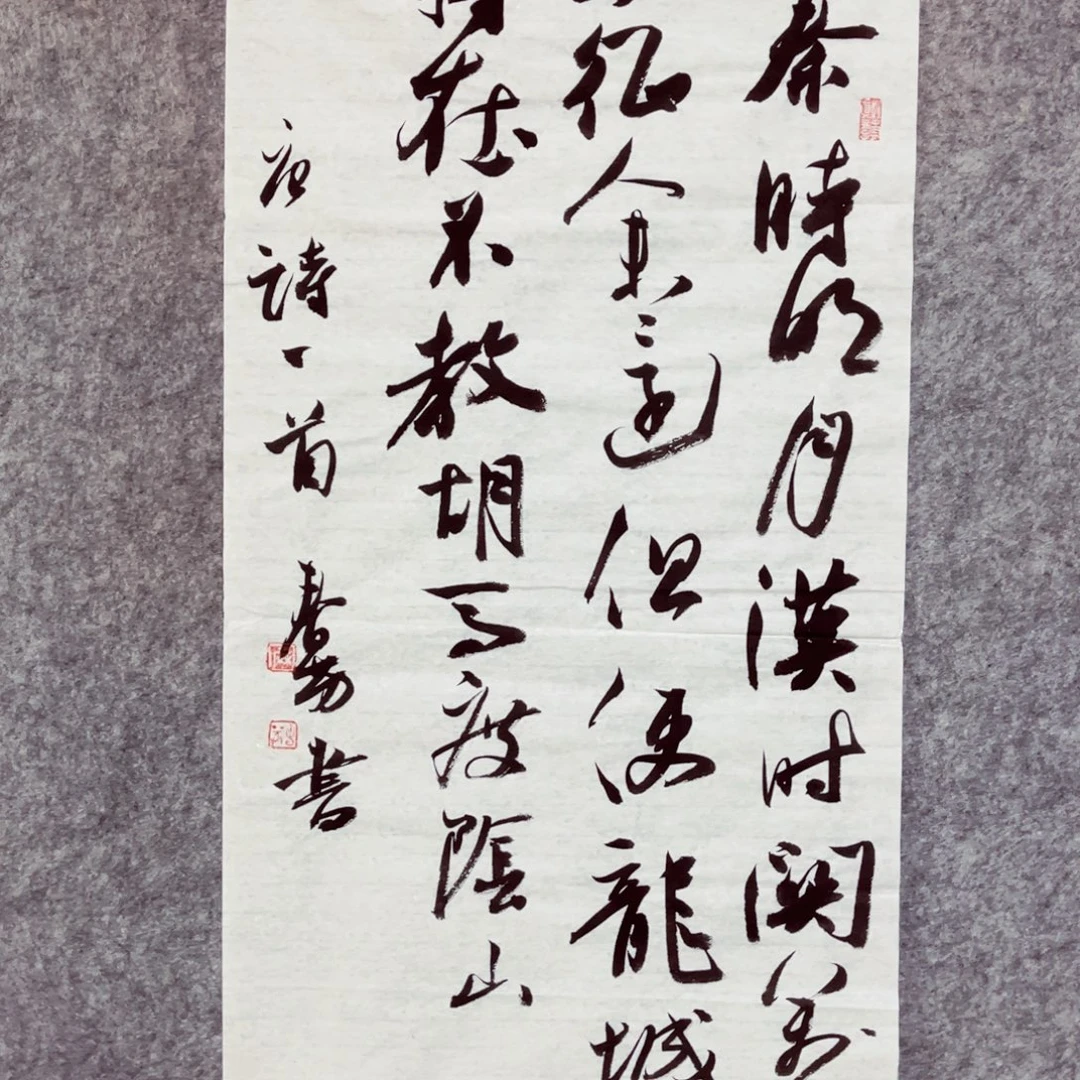 秦時明月漢时関萬
征人未還但使龍城
将在不教胡马度陰山
唐詩一首 書